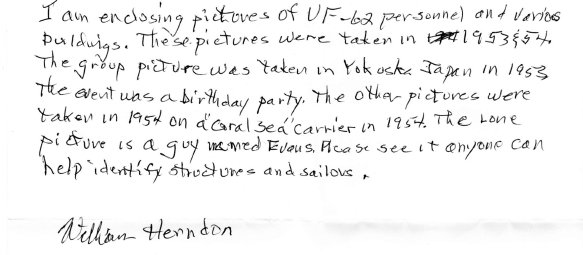 I am enclosing pictures of VF-62 personnel and various
buildings. These pictures were taken in 1953 & 54.
The group picture was taken in Yokoska Japan in 1953.
The event was a birthday party. The other pictures were
taken in 1954 on a "Coral Sea" Carrier in 1954. The lone
picture is a guy named Evans. Please see if anyone can
help identify structures and sailors.
William Herndon